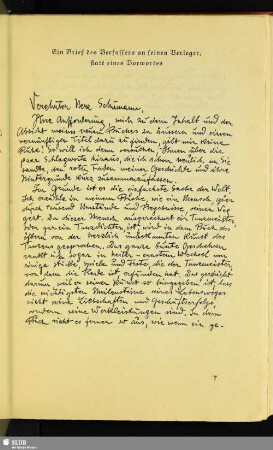 Ein Brief des Verfassers an seinen Verleger,
statt eines Vorwortes
Verehrter Herr Schümann,
Ihre Aufforderung, mich zu dem Inhalt und der
Absicht meines neuen Buches zu äussern und einen
vernünftigen Titel dazu zu finden, gibt mir keine
Ruhe! So will ich denn versuchen, Ihnen über die
paar Schlagworte hinaus, die ich schon neulich an Sie
sandte, den roten Faden meiner Geschichte und ihre
Hintergründe kurz zusammenzufassen.
Im Grunde ist es die einfachste Sache der Welt.
Ich erzähle in meinem Buche, wie ein Mensch ganz
durch tausend Umstände und Ereignisse seinen
Da dieser Mensch ausgerechnet ein Tanzmeister,
oder gar ein Tanzdichter ist, wird in dem Buch des
öfteren von der herzlich unbekannten Kunst des
Tanzens gesprochen. Das ganze bunte Geschehen
rankt sich sogar in heiter-ernstem Wechsel um
einige Spiele und Feste, die der Tanzmeister,
von dem die Rede ist, erfunden hat. Das geschieht
darum weil er seiner Kunst so hingegeben ist, dass
die wichtigsten Meilensteine seines Lebensweges
nicht seine Liebschaften und Geschäftserfolge
sondern seine Werkleistungen sind. In dem
sieht es ferner so aus, wie wenn ein ge-
7
SLUB